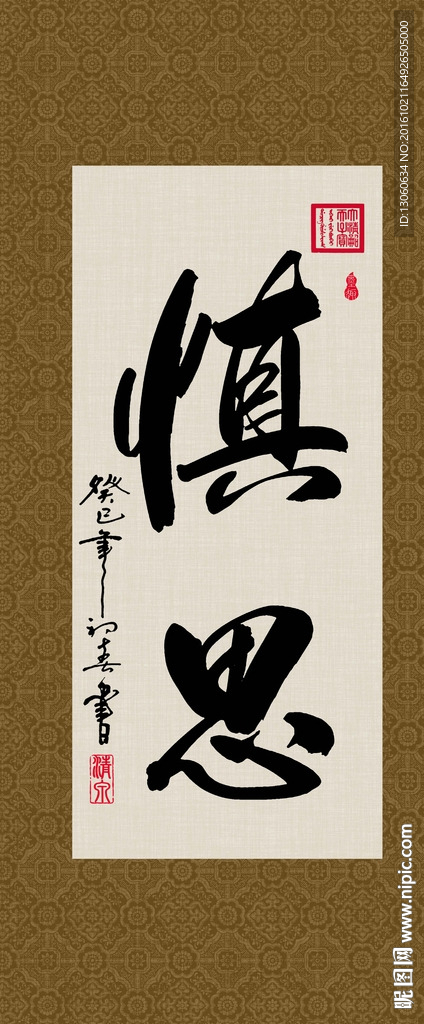 慎思
癸巳年初春書
清泉
ID:13060634 NO:20161021164926505000
昵图网 www.nipic.com